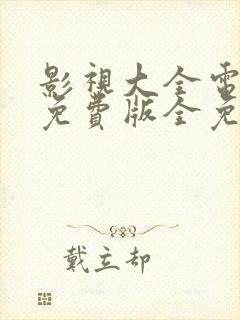 影視大全電
免費版全免
戴立却